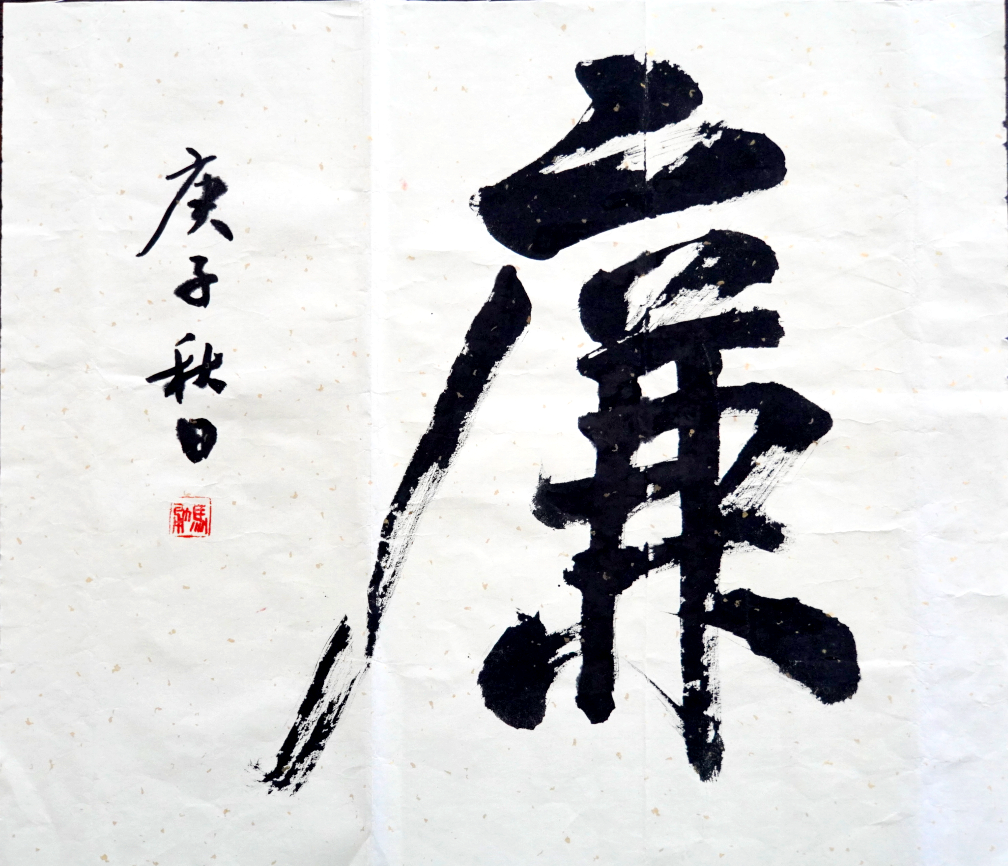 廉
庚子秋日